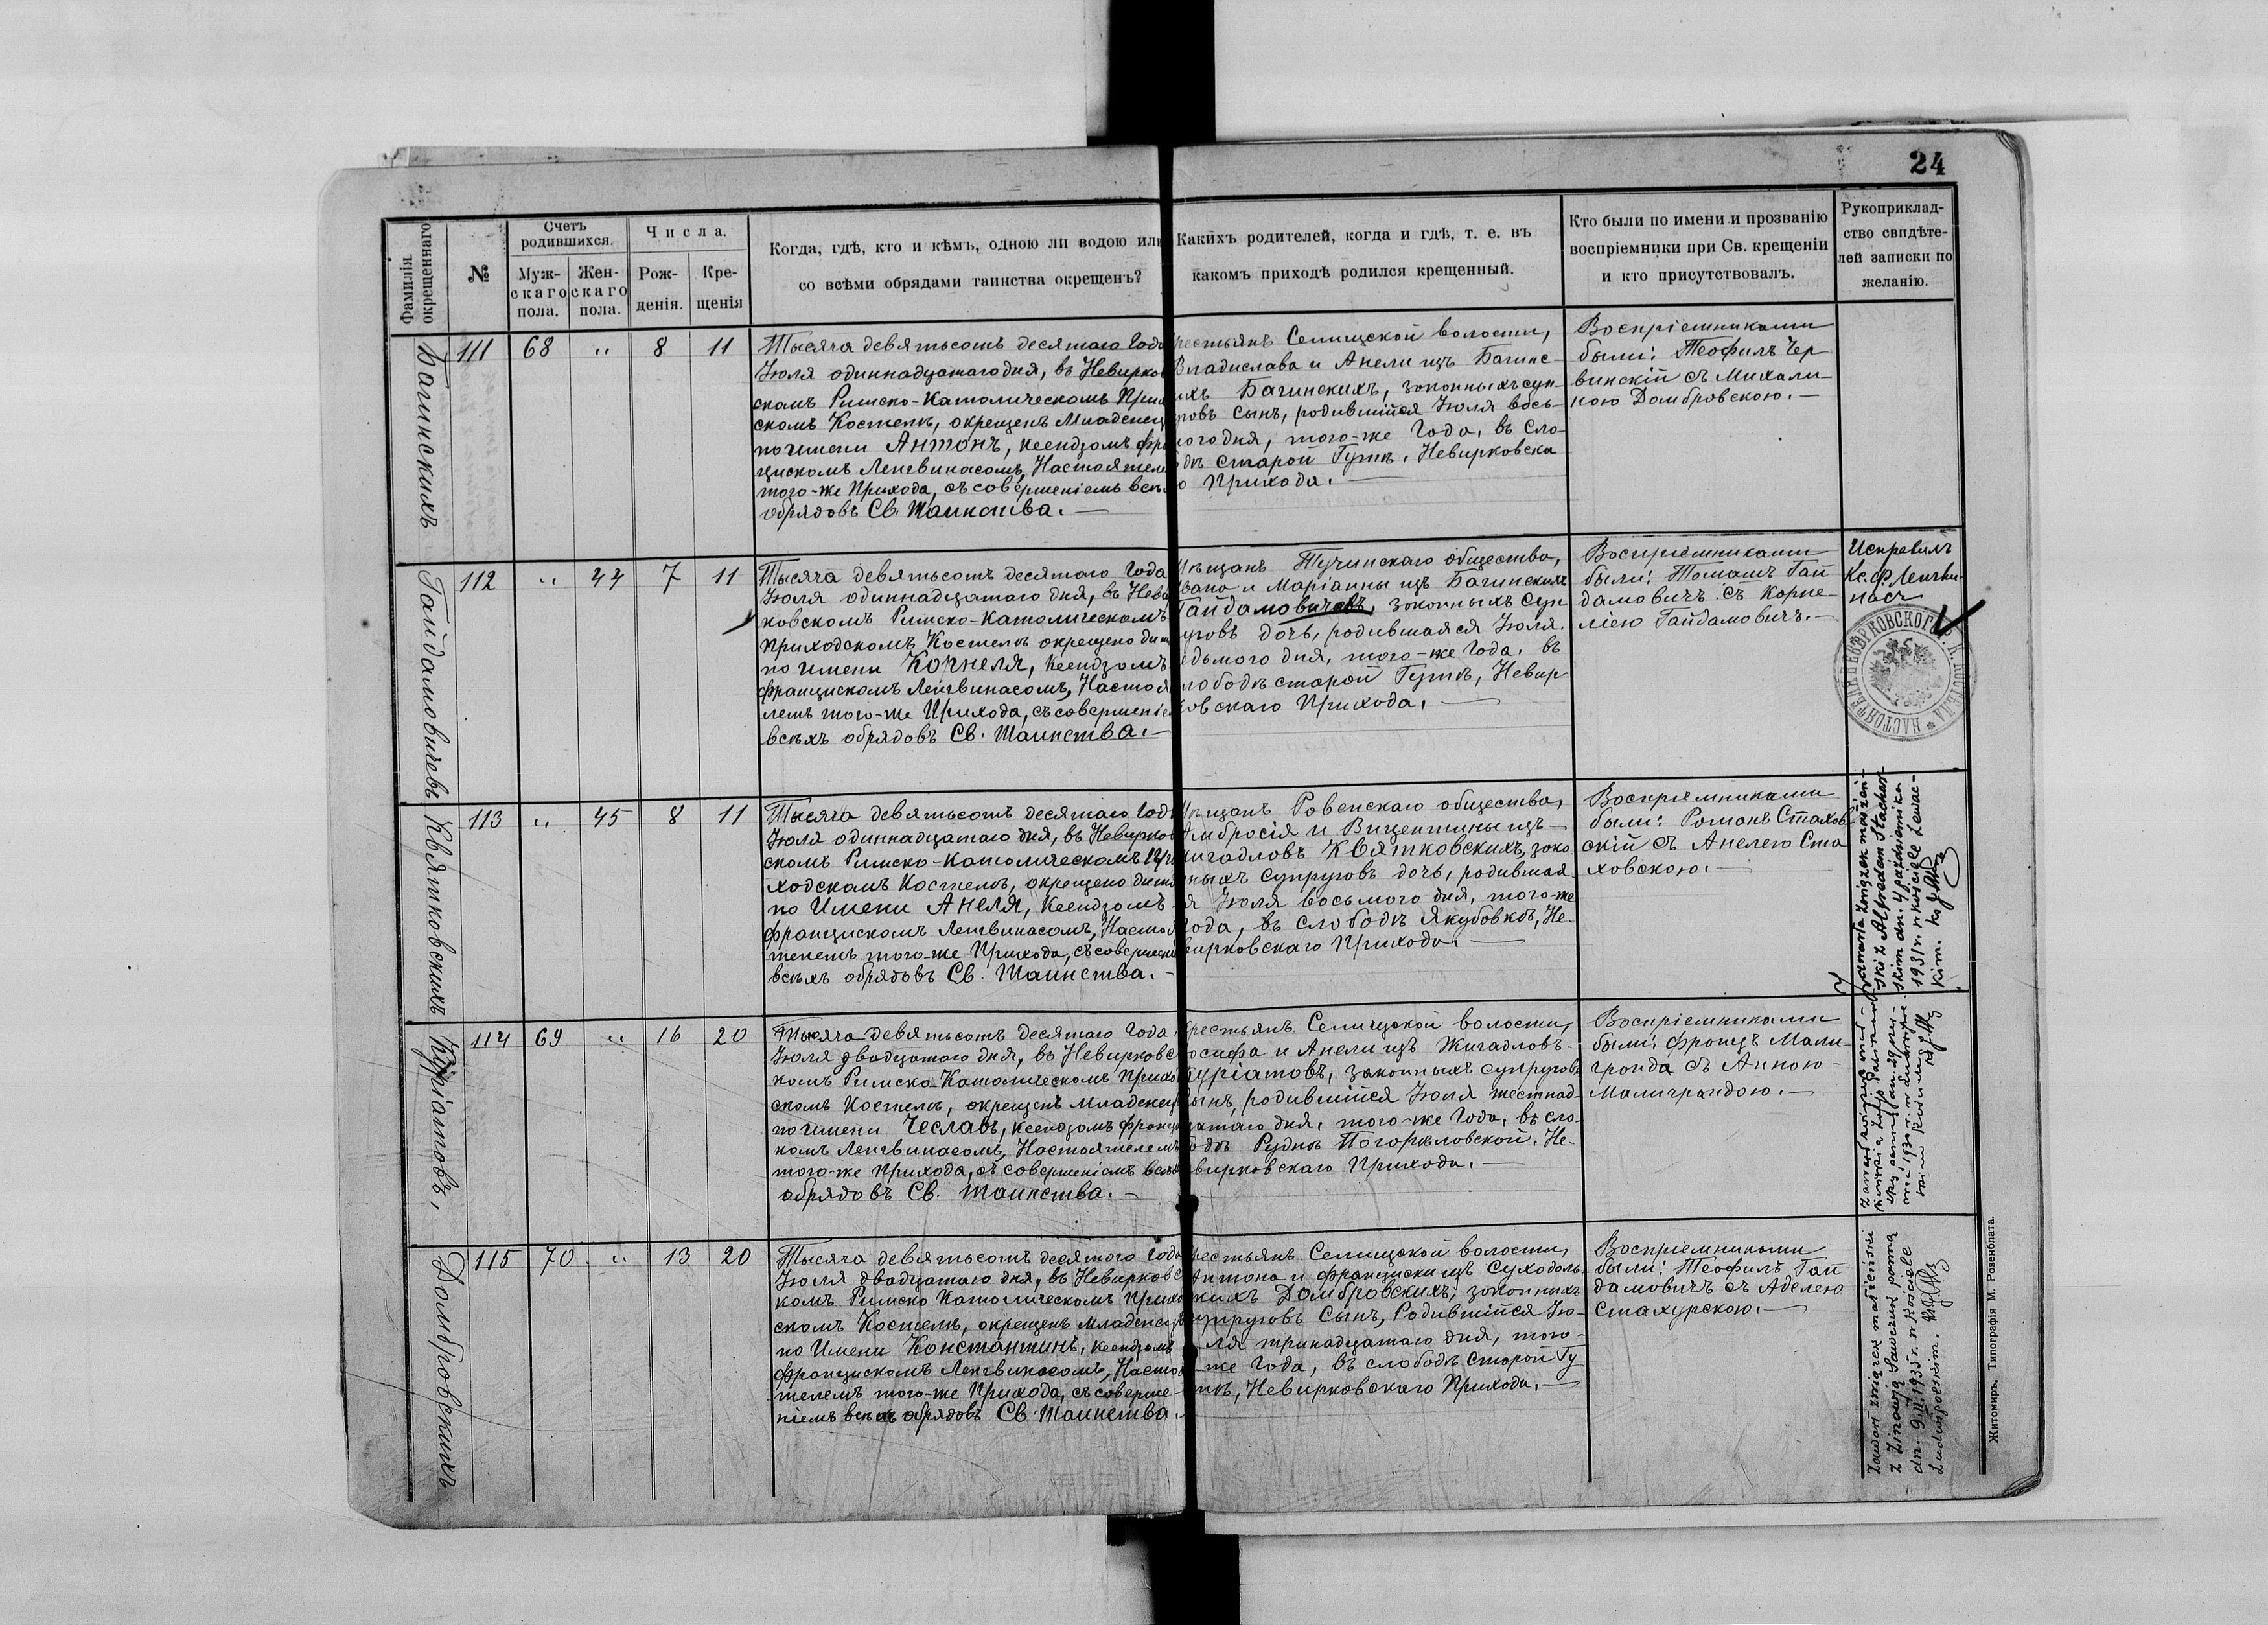 24
Фамилія окрещеннаго
№
Счетъ родившихся.
Муж-скаго пола.
Жен-скаго пола.
Числа.
Рож-денія.
Кре-щенія
Когда, гдѣ, кто и кѣмъ, одною ли водою или
со всѣми обрядами таинства окрещенъ?
Какихъ родителей, когда и гдѣ, т. е. въ
какомъ приходѣ родился крещенный.
Кто были по имени и прозванію
воспріемники при Св. крещеніи
и кто присутствовалъ.
Рукоприклад-
ство свидѣте-
лей записки по
желанію.
Багинскихъ
111 68 " 8 11
Тысяча девятьсотъ десятаго Года
Іюля одиннадцатаго дня, въ Невирков
скомъ Римско-Католическомъ Прих
скомъ Костелѣ, окрещенъ Младенец
по имени Антонъ, Ксендзомъ Фра
цискомъ Ленгвинасомъ, Настоятел
того-же Прихода, съ совершеніемъ всѣ
обрядовъ Св. Таинства.—
рестьянъ Селищской волости,
Владислава и Анели изъ Багинс-
ихъ Багинскихъ, законныхъ суп-
говъ сынъ, родившійся Іюля вось-
мого дня, того-же Года, въ Сло-
дѣ старой Гутѣ, Невирковска
о Прихода.—
Воспріемниками
были: Теофилъ Чер
винскій съ Михали-
ною Домбровскою.—
Гайдамовичевъ
112 " 44 7 11
Тысяча девятьсотъ десятаго Года
Іюля одиннадцатаго дня, въ Неви
ковскомъ Римско-Католическомъ
Приходскомъ Костелѣ окрещено дит
по имени Корнеля, Ксендзомъ
Францискомъ Ленгвинасомъ, Настоя
лемъ того-же Прихода, съ совершеніе
всѣхъ обрядовъ Св. Таинства.—
ѣщанъ Тучинскаго общества,
Ивана и Маріанны изъ Багинскихъ
Гайдамовичевъ, законныхъ Суп
уговъ дочь, родившаяся Іюля.
едьмого дня, того-же Года, въ
лободѣ старой Гутѣ, Невир-
ковскаго Прихода.—
Воспріемниками
были: Томашъ Гай
дамовичъ съ Корне-
ліею Гайдамовичъ.—
Исправилъ
Кс. Ф. Ленгви-
насъ
Квятковскихъ
113 " 45 8 11
Тысяча девятьсотъ десятаго Года
Іюля одиннадцатаго дня, въ Невирков
скомъ Римско-Католическомъ При
ходскомъ Костелѣ, окрещено дитя
по Имени Анеля, Ксендзомъ
Францискомъ Ленгвинасомъ, Настоя
телемъ того-же Прихода, съ совершені
всѣхъ обрядовъ Св. Таинства.—
ѣщанъ Ровенскаго общества,
Амбросія и Вицентины изъ
Жигадловъ Квятковскихъ, зако
ныхъ супруговъ дочь, родившая
я Іюля восьмого дня, того-же
Года, въ слободѣ Якубовкѣ, Не-
вирковскаго Прихода.—
Воспріемниками
были: Романъ Стахов
скій съ Анелею Ста
ховскою.—
zawarła związek małżeń-
ski z Alfredem Stachow-
skim dn. 4 października
1931 r. w kościele Lewac-
kim. ks.
Куріатовъ,
114 69 " 16 20
Тысяча девятьсотъ десятаго Года
Іюля двадцатаго дня, въ Невирковс
комъ Римско-Католическомъ Прихо
скомъ Костелѣ, окрещенъ Младенец
по имени Чеславъ, Ксендзомъ Франц
комъ Ленгвинасомъ, Настоятелемъ
того-же Прихода, съ совершеніемъ всѣх
обрядовъ Св. Таинства.—
рестьянъ Селищской волости,
осифа и Анели изъ Жигадловъ-
Куріатовъ, законныхъ супругов
сынъ, родившійся Іюля шестнад-
цатаго дня, того-же Года, въ сло-
бодѣ Рудня Погорѣловской, Не-
вирковскаго Прихода.—
Воспріемниками
были: Францъ Мали-
гронда съ Анною
Малиграндою.—
Домбровскихъ
115 70 " 13 20
Тысяча девятьсотъ десятаго Года
Іюля двадцатаго дня, въ Невирковс
комъ Римско Католическомъ Прихо
скомъ Костелѣ, окрещенъ Младенец
по Имени Константинъ, Ксендзомъ
Францискомъ Ленгвинасомъ, Настоя
телемъ того-же Прихода, съ соверше-
ніемъ всѣхъ обрядовъ Св. Таинства.
рестьянъ Селищской волости,
Антона и Франциски изъ Суходоль-
кихъ Домбровскихъ, законныхъ
супруговъ Сынъ, Родившійся Ію-
ля тринадцатаго дня, того-
же Года, въ слободѣ Старой Гу
тѣ, Невирковскаго Прихода.—
Воспріемниками
были: Теофилъ Гай
дамовичъ съ Аделею
Стахурскою.—
Zawarł związek małżeński
z Zinowją Sawczuk panną
dn. 9.II.1935 r. w kościele
Ludwipolskim.
Житомиръ, Типографія М. Розенблата.